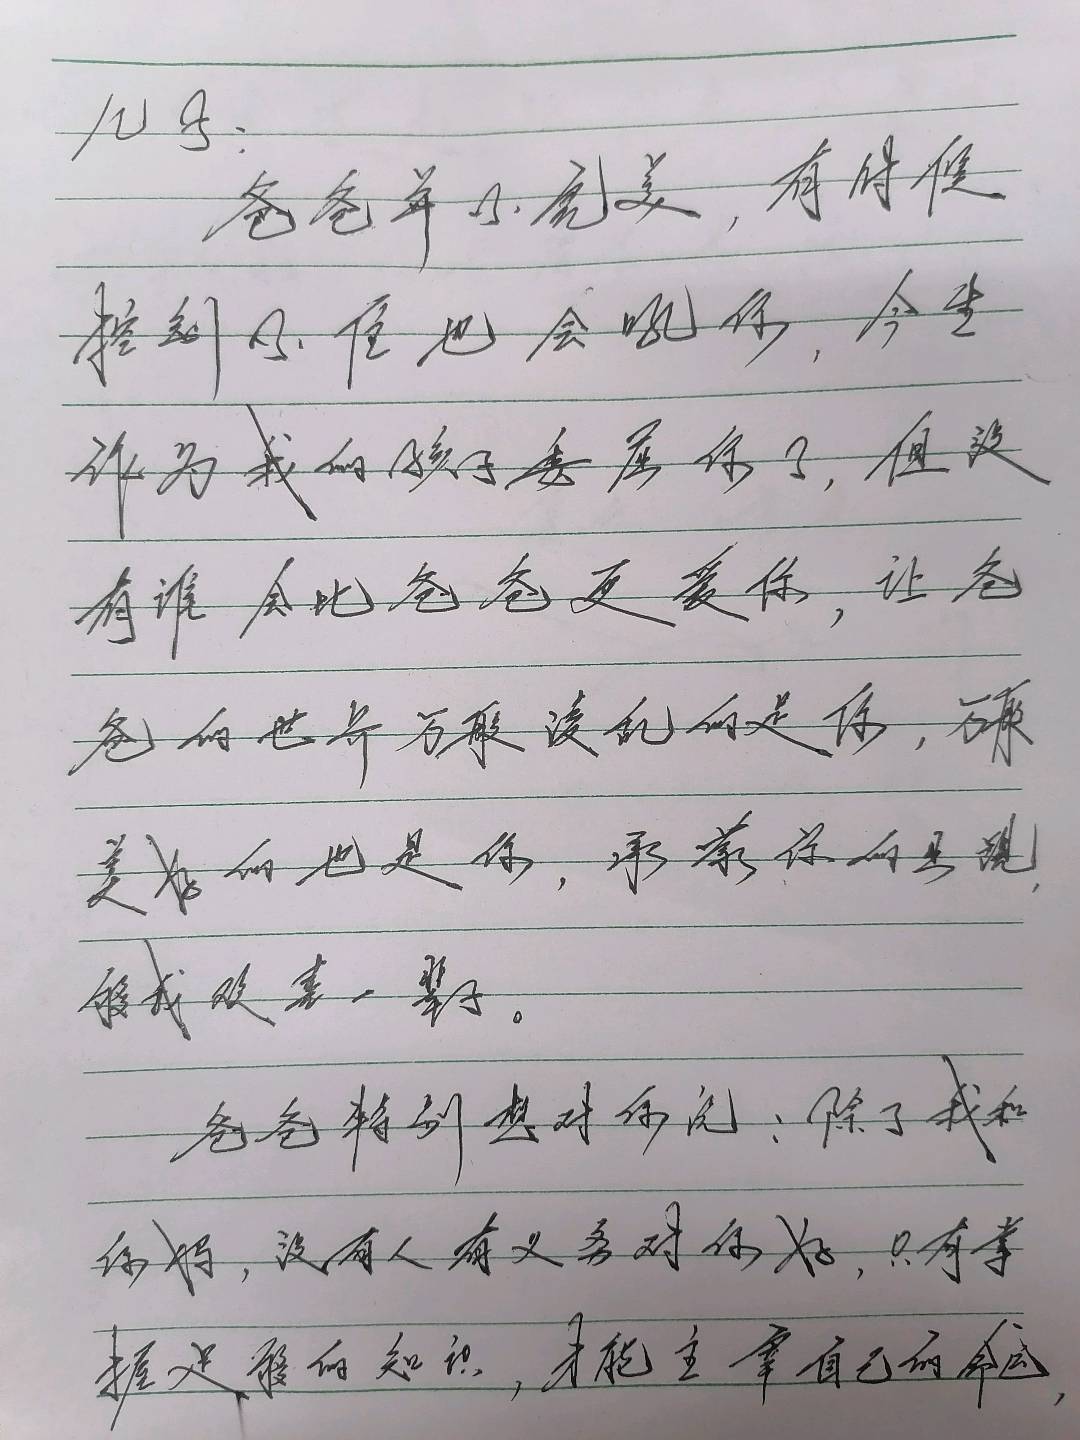 儿子：
爸爸并不完美，有时候
控制不住也会吼你，今生
作为我的孩子委屈你了，但没
有谁会比爸爸更爱你，让爸
爸的世界万般凌乱的是你，万般
美好的也是你，承蒙你的出现，
够我欢喜一辈子。
爸爸特别想对你说：除了我和
你妈，没有人有义务对你好，只有掌
握足够的知识，才能主宰自己的命运，